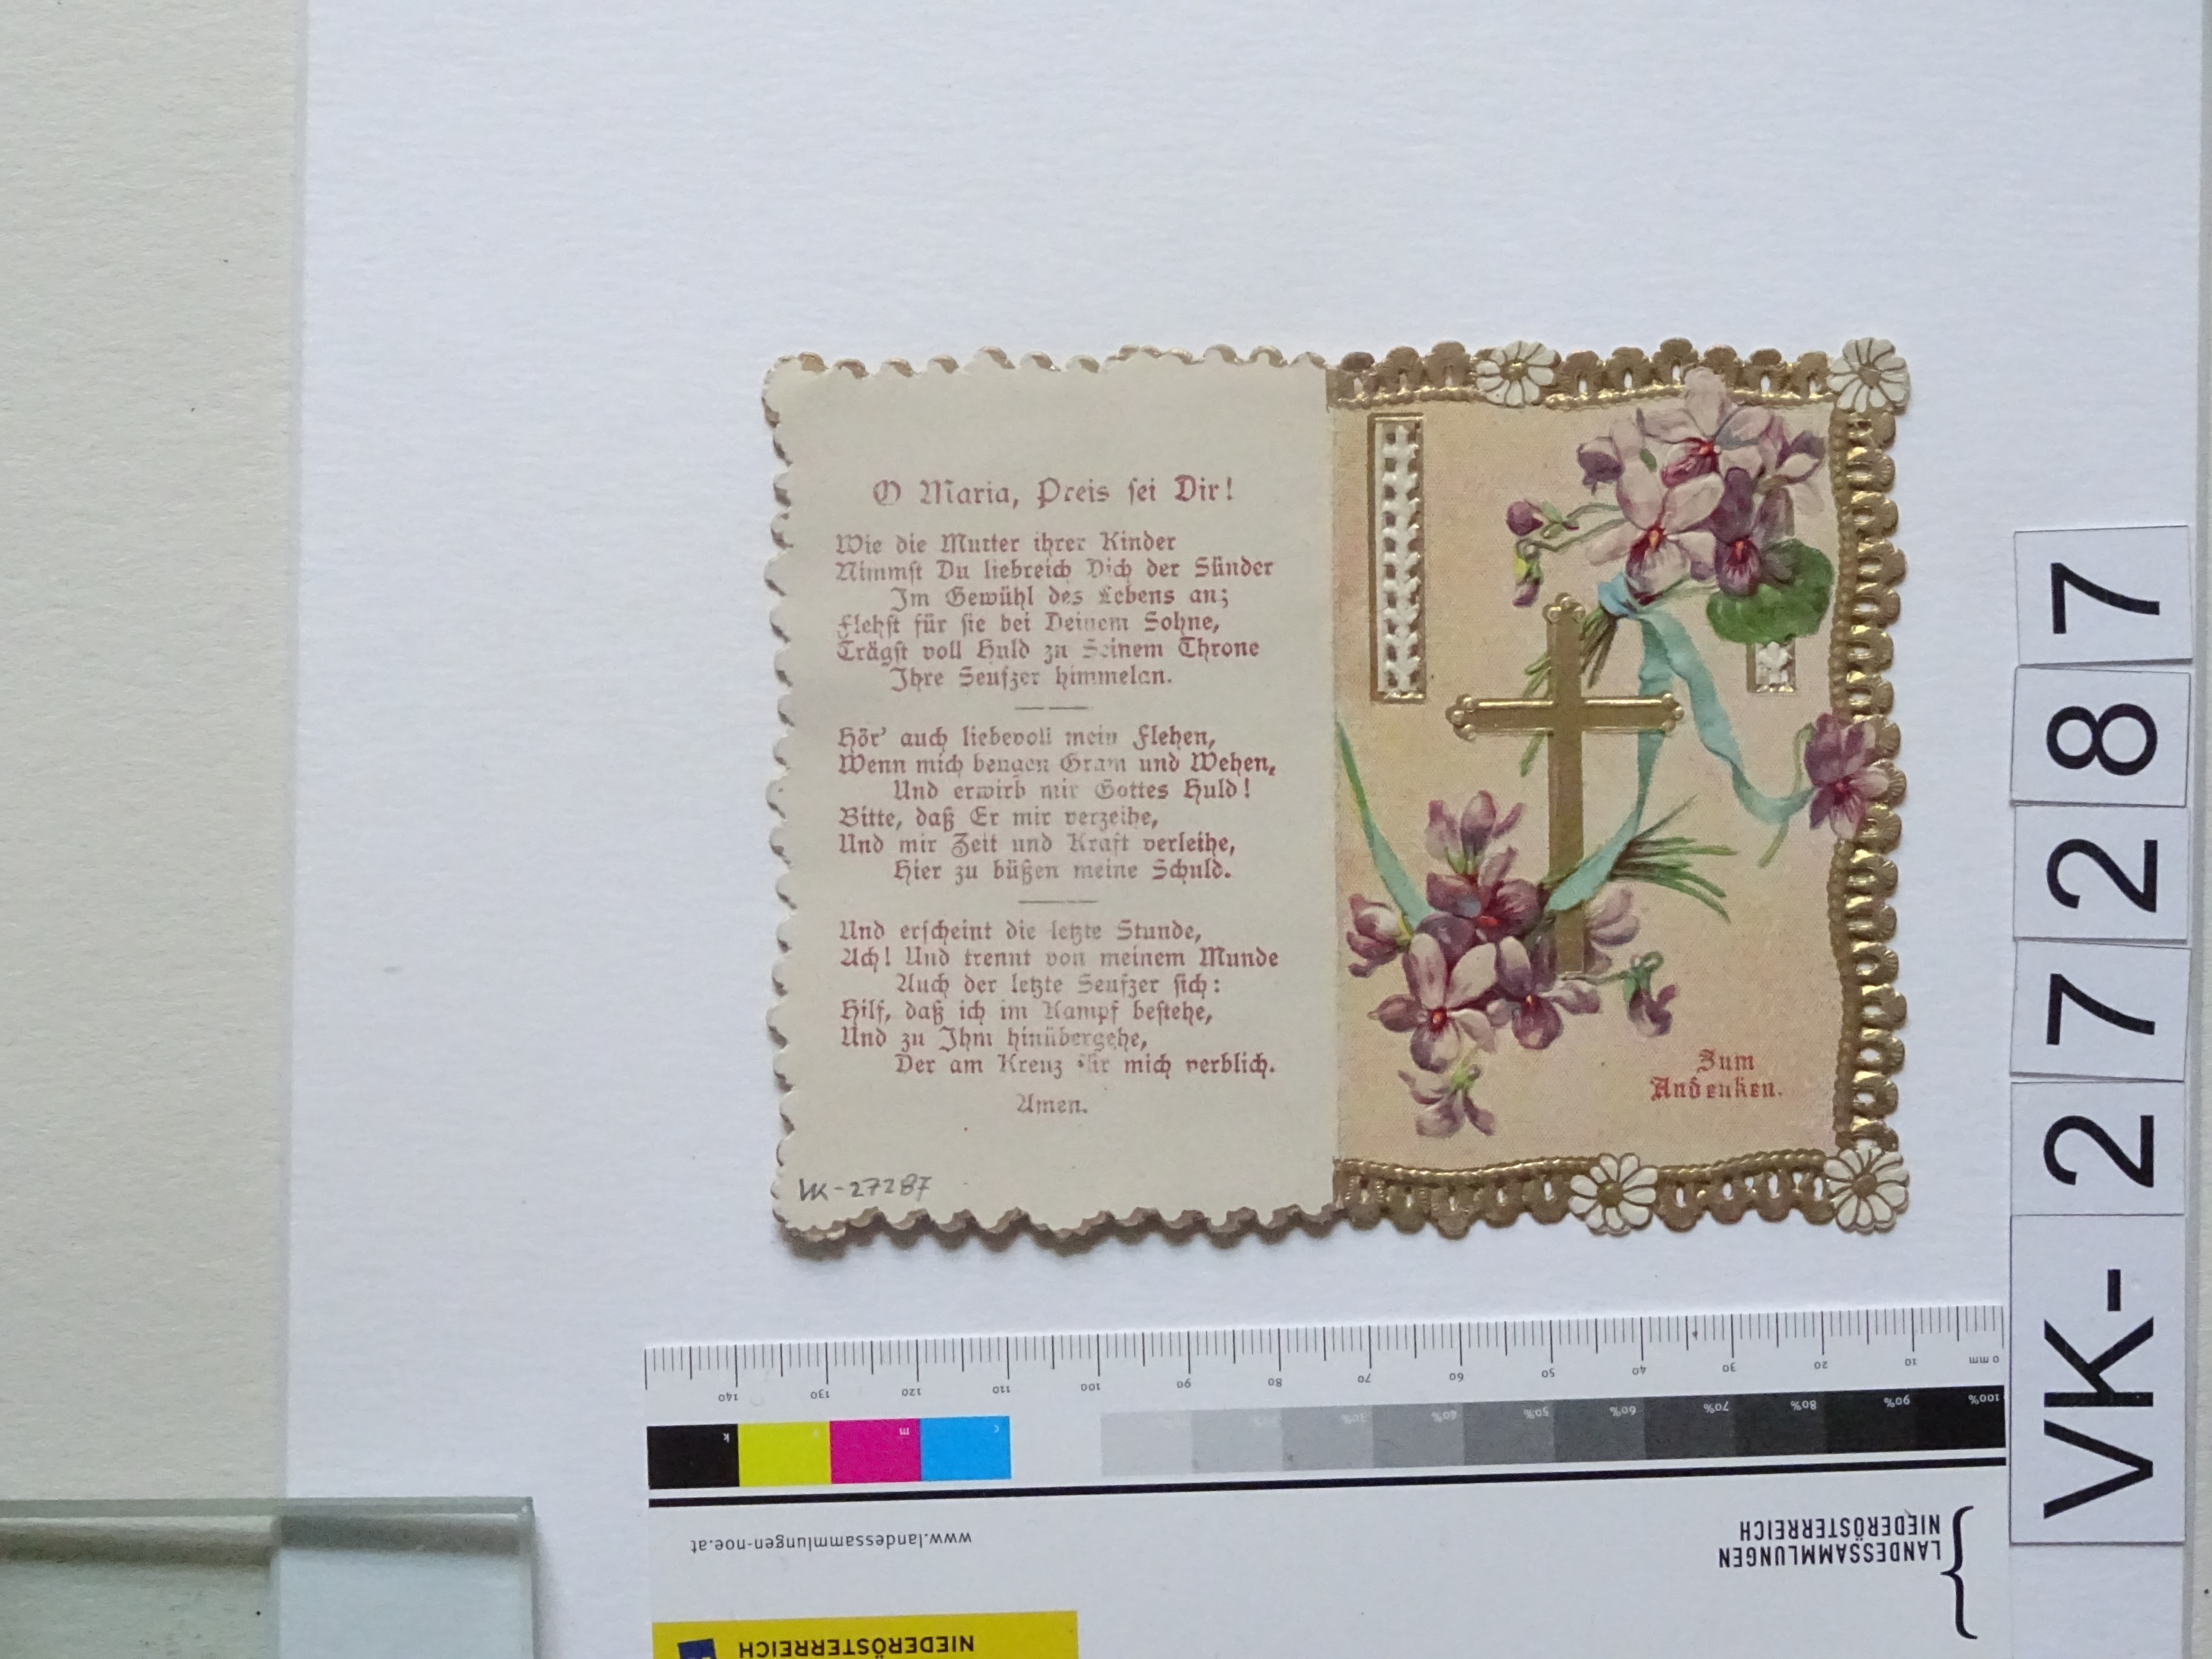 O Maria, Preis sei Dir!
Wie die Mutter ihrer Kinder
Nimmst Du liebreich Dich der Sünder
Im Gewühl des Lebens an;
Flehst für sie bei Deinem Sohne,
Trägst voll Huld zu Seinem Throne
Ihre Seufzer himmelan.
Hör' auch liebevoll mein Flehen,
Wenn mich beugen Gram und Wehen,
Und erwirb mir Gottes Huld!
Bitte, daß Er mir verzeihe,
Und mir Zeit und Kraft verleihe,
Hier zu büßen meine Schuld.
Und erscheint die letzte Stunde,
Ach! Und trennt von meinem Munde
Auch der letzte Seufzer sich:
Hilf, daß ich im Kampf bestehe,
Und zu Ihm hinübergehe,
Der am Kreuz für mich verblich.
Amen.
VK-27287
Zum
Andenken.
VK-27287
0 mm 10 20 30 40 50 60 70 80 90 100 110 120 130 140
100% 90% 80% 70% 60% 50% 40% 30%
c m y k
www.landessammlungen-noe.at
LANDESSAMMLUNGEN
NIEDERÖSTERREICH
NIEDERÖSTERREICH